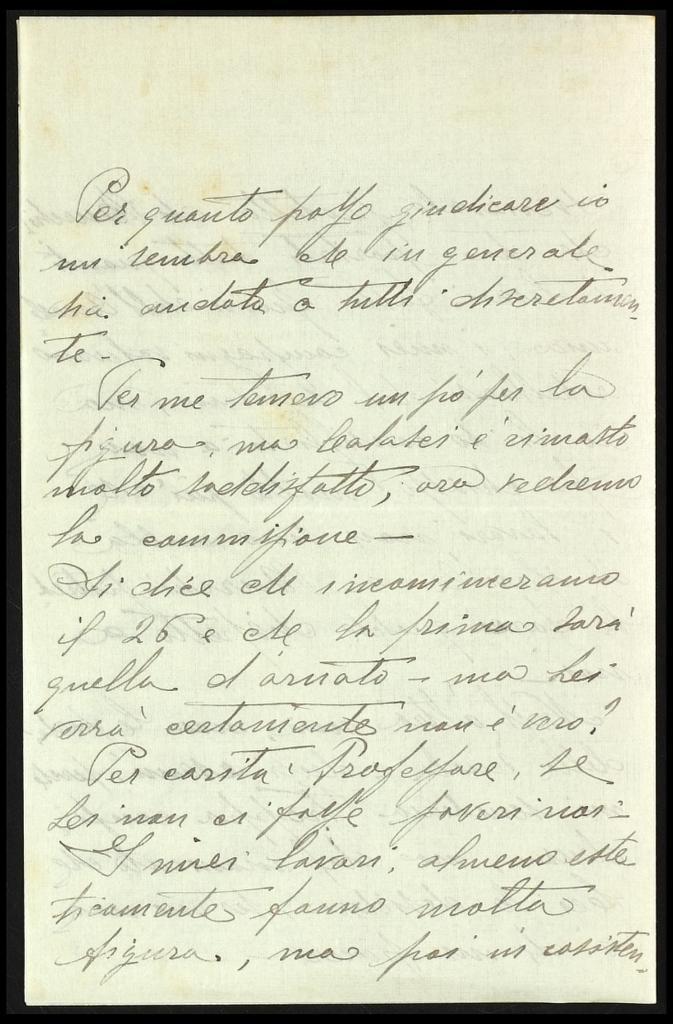 Per quanto posso giudicare io
mi sembra che in generale
sia andata a tutti discretamen-
te -
Per me temevo un pò per la
figura, ma Calalsei è rimasto
molto soddisfatto, ora vedremo
la commissione —
Si dice che incominceranno
il 26 e che la prima sarà
quella d'ornato - ma Lei
verrà certamente non è vero?
Per carità! Professore, se
Lei non ci fosse poveri noi -
I miei lavori, almeno este
ticamente fanno molta
figura, ma poi in consisten-